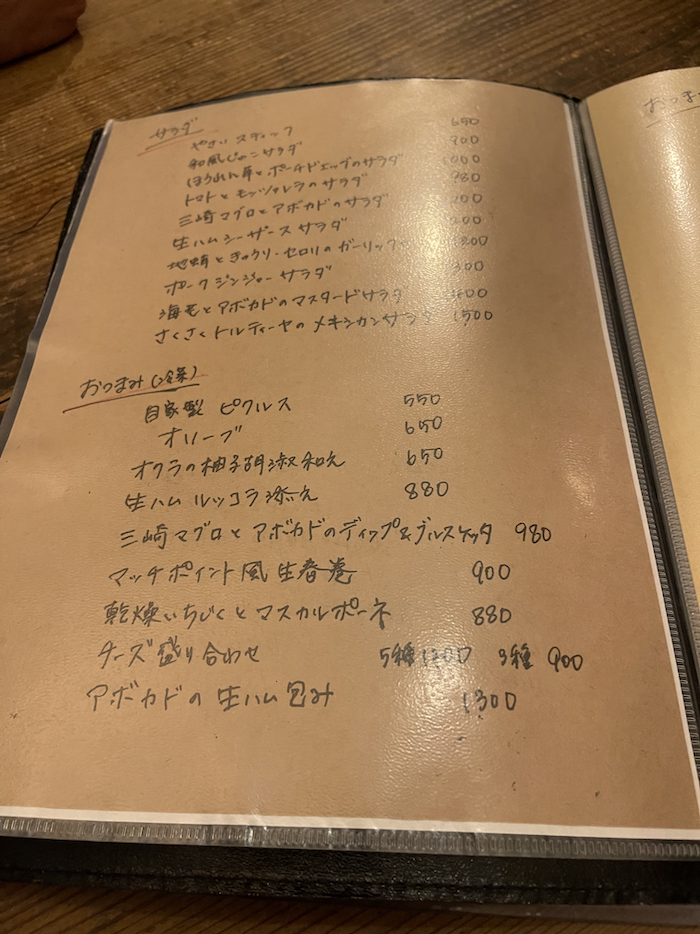 サラダ
やさいスティック 650
和風じゃこサラダ 900
ほうれん草とポーチドエッグのサラダ 1000
トマトとモッツァレラのサラダ 980
三崎マグロとアボカドのサラダ
生ハムシーザーサラダ
地蛸ときゅうり・セロリのガーリック
ポークジンジャーサラダ
海老とアボカドのマスタードサラダ
さくさくトルティーヤのメキシカンサラダ 1500
おつまみ(冷菜)
自家製 ピクルス 550
オリーブ 650
オクラの柚子胡椒和え 650
生ハム ルッコラ添え 880
三崎マグロとアボカドのディップ&ブルスケッタ 980
マッチポイント風生春巻 900
乾燥いちじくとマスカルポーネ 880
チーズ盛り合わせ 5種1200 3種 900
アボカドの生ハム包み 1300
おつま